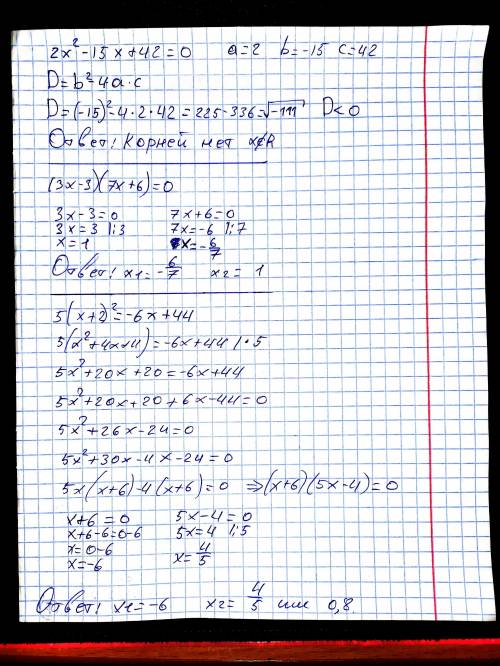 2x²-15x+42=0 a=2 b=-15 c=42
D=b²-4a·c
D=(-15)²-4·2·42=225-336=√-111 D<0
Ответ: Корней нет x∉R
(3x-3)(7x+6)=0
3x-3=0 7x+6=0
3x=3 |:3 7x=-6 |:7
x=1 x=-6/7
Ответ: x1=-6/7 x2= 1
5(x+2)²=-6x+44
5(x²+4x+4)=-6x+44 | · 5
5x²+20x+20=-6x+44
5x²+20x+20+6x-44=0
5x²+26x-24=0
5x²+30x-4x-24=0
5x(x+6)-4(x+6)=0 ⇒(x+6)(5x-4)=0
x+6=0 5x-4=0
x+6-6=0-6 5x=4 |:5
x=0-6 x=4/5
x=-6
Ответ: x1=-6 x2= 4/5 или 0,8.